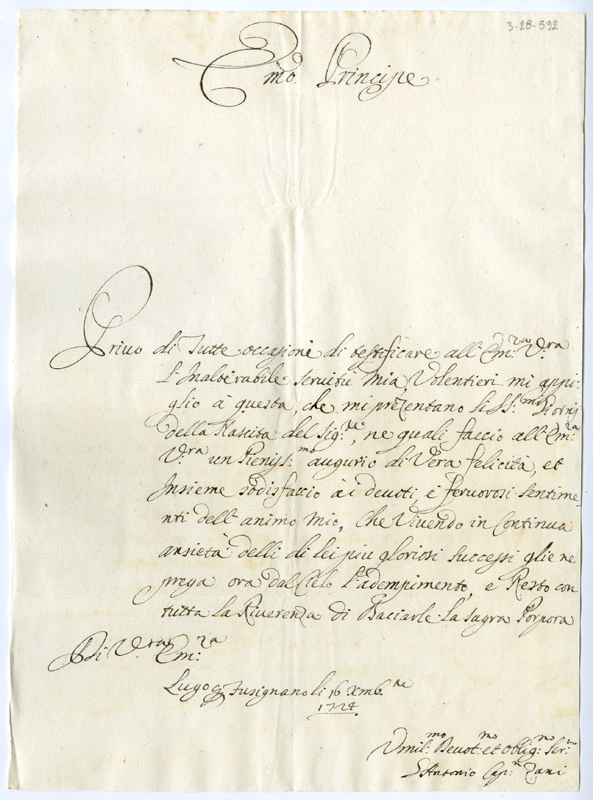 3-28-592
Em̃o Principe
Privo di tutte occasioni di testificare all' Em:za V:ra
l'Inalterabile servitù mia, Volentieri mi appi-
glio à questa, che mi prezentano li SS:mi Giorni
della Nascita del Sig:re, ne quali faccio all' Em:za
V:ra un Pieniss:mo augurio di Vera felicità, et
Insieme sodisfaccio à i devoti, e fervorosi sentime-
nti dell' animo mio, che Vivendo in Continua
ansietà delli di lei piu gloriosi successi gliene
prega ora dal Cielo l'adempimento, e Resto con
tutta la Riverenza di Baciarle la Sagra Porpora
Di V:ra Em:za
Lugo Fusignano li 16 Xmb:re
1724
Umil:mo Devot:mo et Oblig:mo Ser:re
Antonio Cap:n Zani